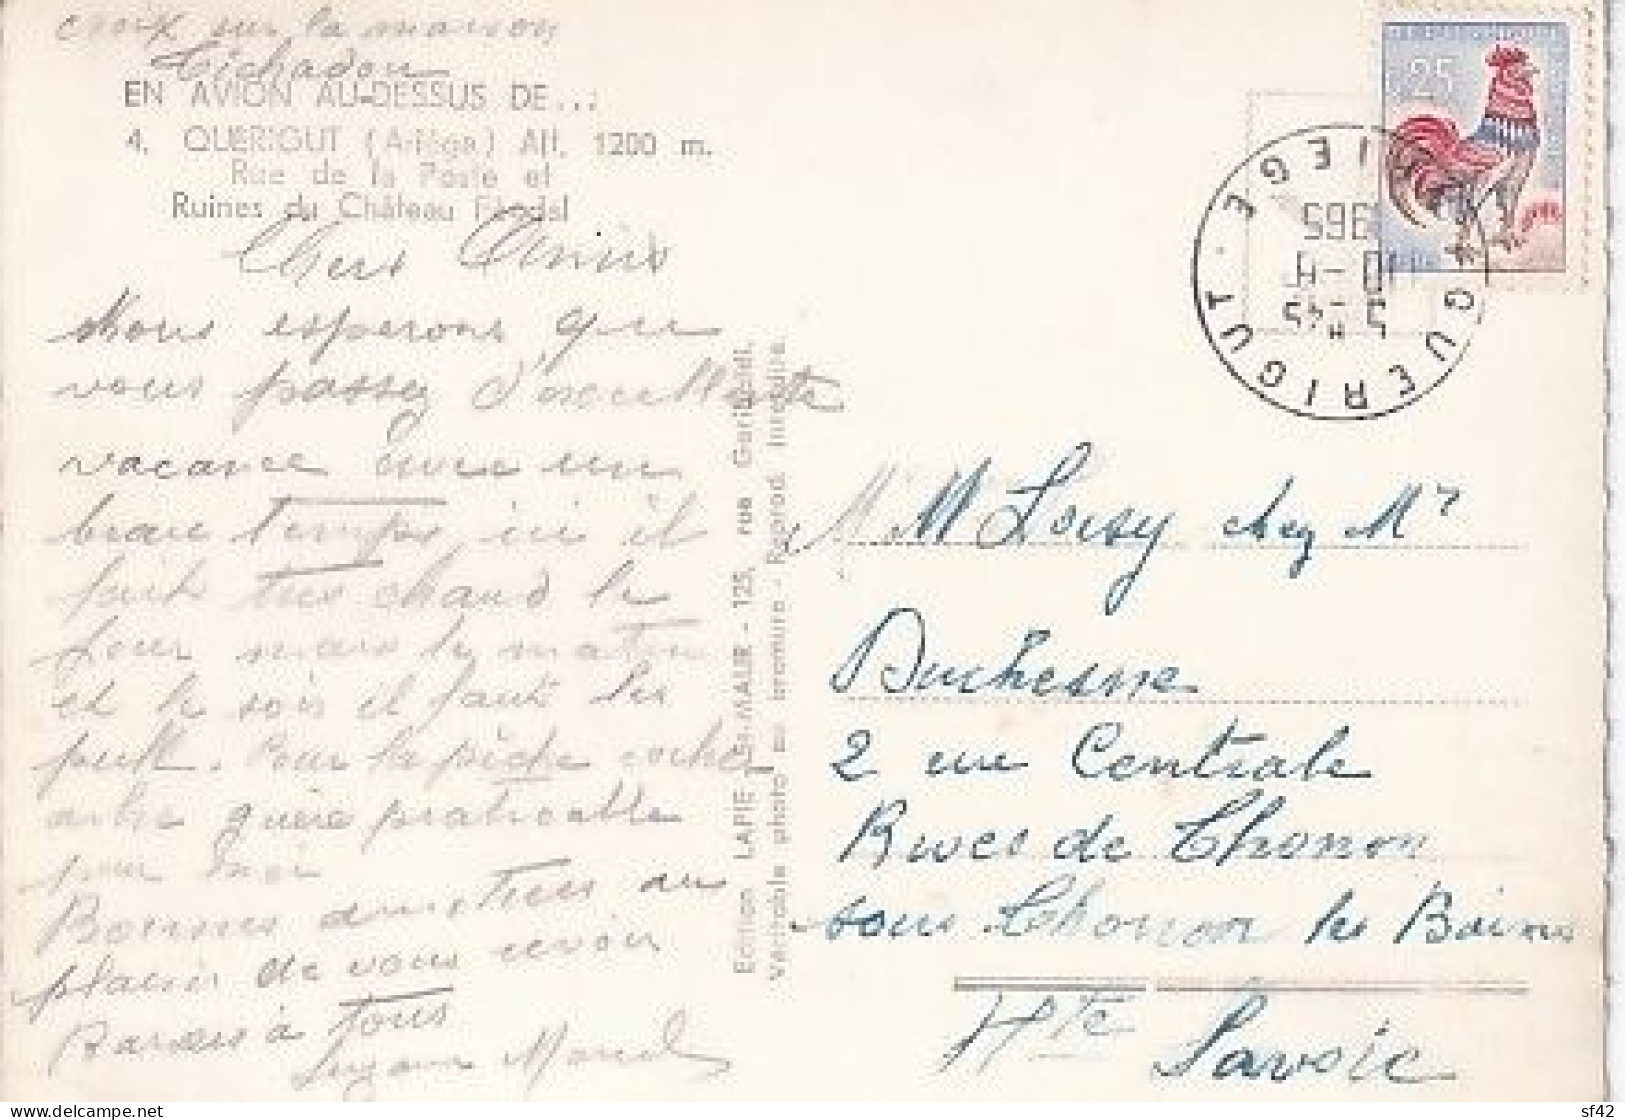 croix sur la maison
Tichadou
EN AVION AU-DESSUS DE...:
4. QUERIGUT (Ariège) Alt. 1200 m.
Rue de la Poste et
Ruines du Château Féodal
Chers Amis
Nous esperons que
vous passez d'excellente
vacance avec un
beau temps, ici il
fait tres chaud le
jour mais le matin
et le soir il faut les
pull. Pour la pêche
guère praticable
pour moi
Bonnes au
plaisir de vous revoir
Baisers à tous
Suzanne Marcel
Edition LAPIE, St-MAUR - 125, rue Garibaldi.
Véritable photo au bromure - Reprod. interdite.
25
QUERIGUT . ARIEGE
5 H 45
10 - 4
965
M M Loisy chez Mr
Duchesne
2 rue Centrale
Rives de Thonon
sous Thonon les Bains
Hte
Savoie